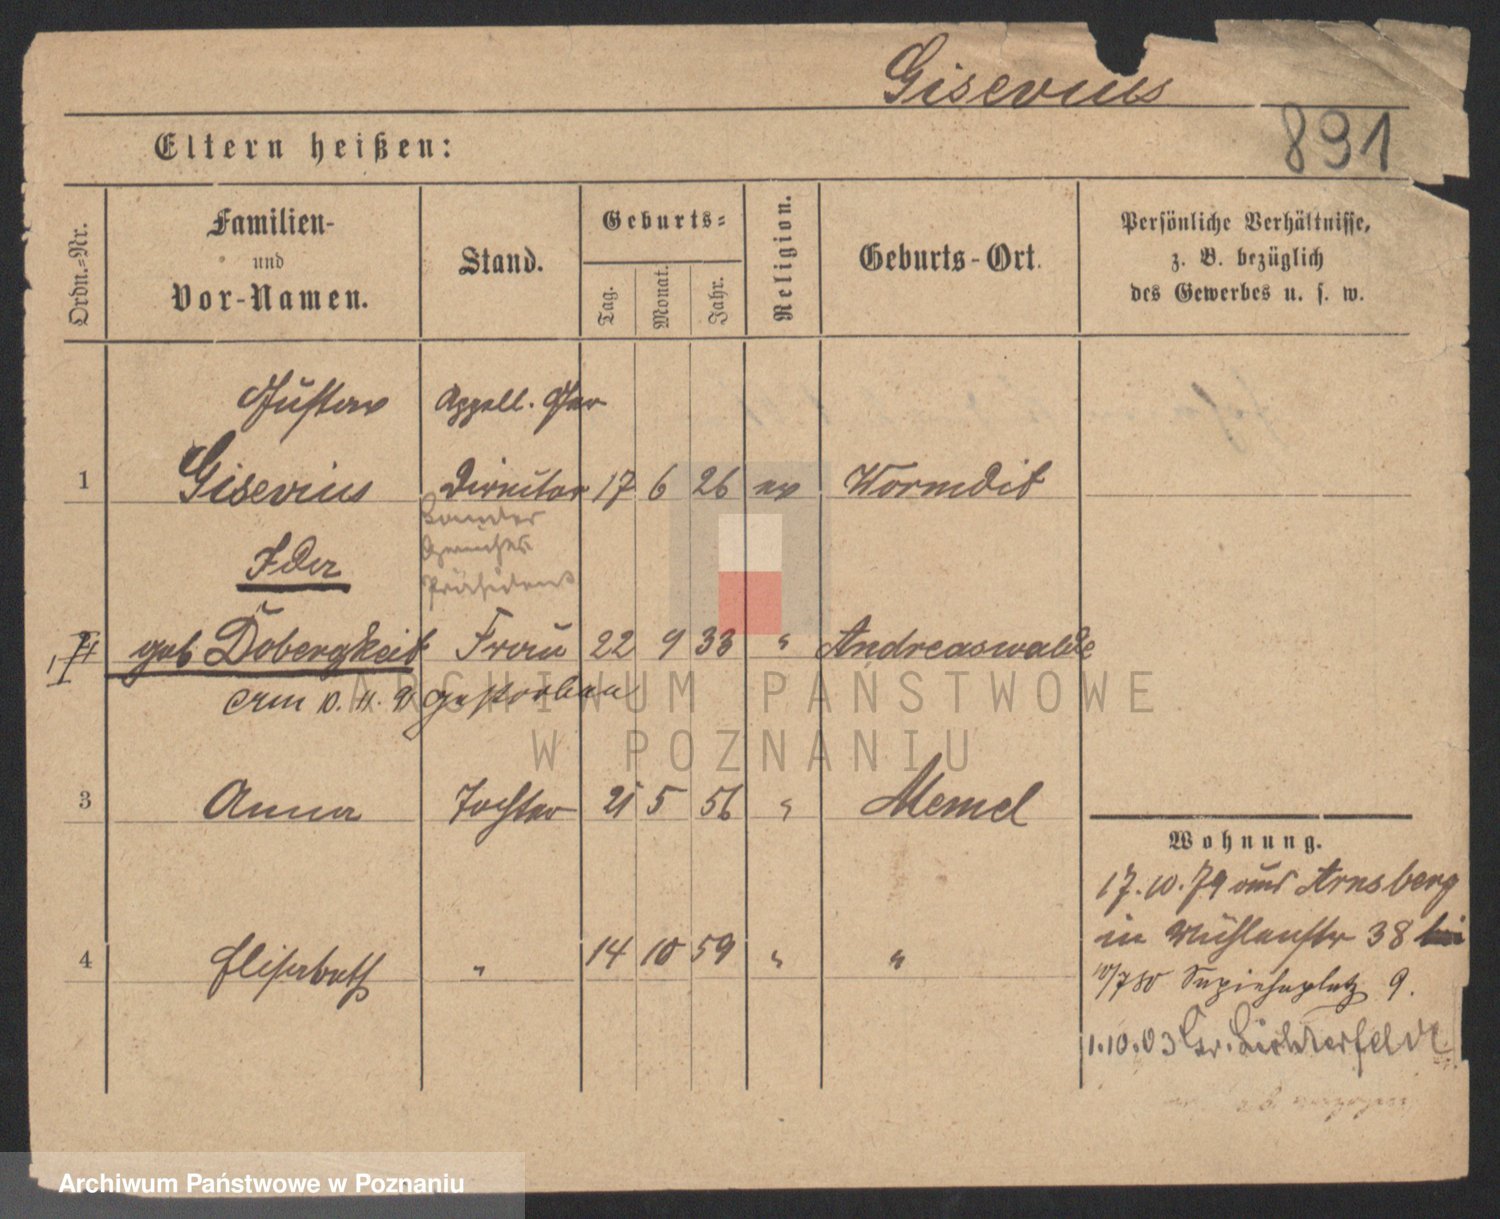 Gisevius
891
Eltern heißen:
Ordn.-Nr.
Familien-
und
Vor-Namen.
Stand.
Geburts-
Tag.
Monat.
Jahr.
Religion.
Geburts-Ort.
Persönliche Verhältnisse,
z. B. bezüglich
des Gewerbes u. s. w.
Gustav Appell. Ger
1 Gisevius Director 17 6 26 ev Wormdit
Landes
Gerichts
Präsident
Ida
geb. Dobergkeit Frau 22 9 33 " Andreaswalde
am 10. 11. 9 gestorben
3 Anna Tochter 21 5 56 " Memel
4 Elisabeth " 14 10 59 " "
Wohnung.
17.10.79 aus Arnsberg
in Mühlenstr 38
10/7 80 Sapiehaplatz 9.
1.10.03 Gr. Lichterfelde
ARCHIWUM PAŃSTWOWE
W POZNANIU
Archiwum Państwowe w Poznaniu